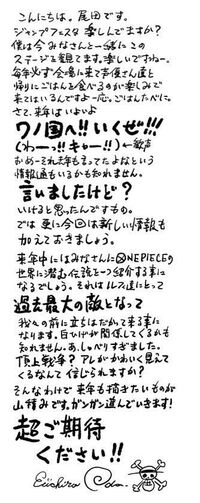 こんにちは。尾田です。
ジャンプフェスタ楽しんでますか？
僕は今みなさんと一緒にこの
ステージを観てます。楽しいですねー。
毎年必ず会場に来て声優さん達と
帰りにごはんを食べるのが楽しみで
来てはいるんですよ一応。ごはんたべに。
さて、来年はいよいよ
ワノ国へ!!いくぜ!!!
(わーっ!!キャー!!)←歓声
おめーそれ去年も言ってたよなという
情報通もいるかも知れません。
言いましたけど？
いけると思ったんですもの。
では更に今回は新しい情報も
加えておきましょう。
来年中にはみなさんにONE PIECEの
世界に潜む伝説を一つ紹介する事に
なるでしょう。それはルフィ達にとって
過去最大の敵となって
我々の前に立ちはだかって来る事に
なります。白ひげが関係してくるかも
知れません。あ、しゃべりすぎました。
頂上戦争？アレがかわいく見えて
くるなんて信じられますか？
そんなわけで来年も描きたいものが
山積みです。ガンガン進んでいきます！
超ご期待
ください!!
Eiichiro Oda.